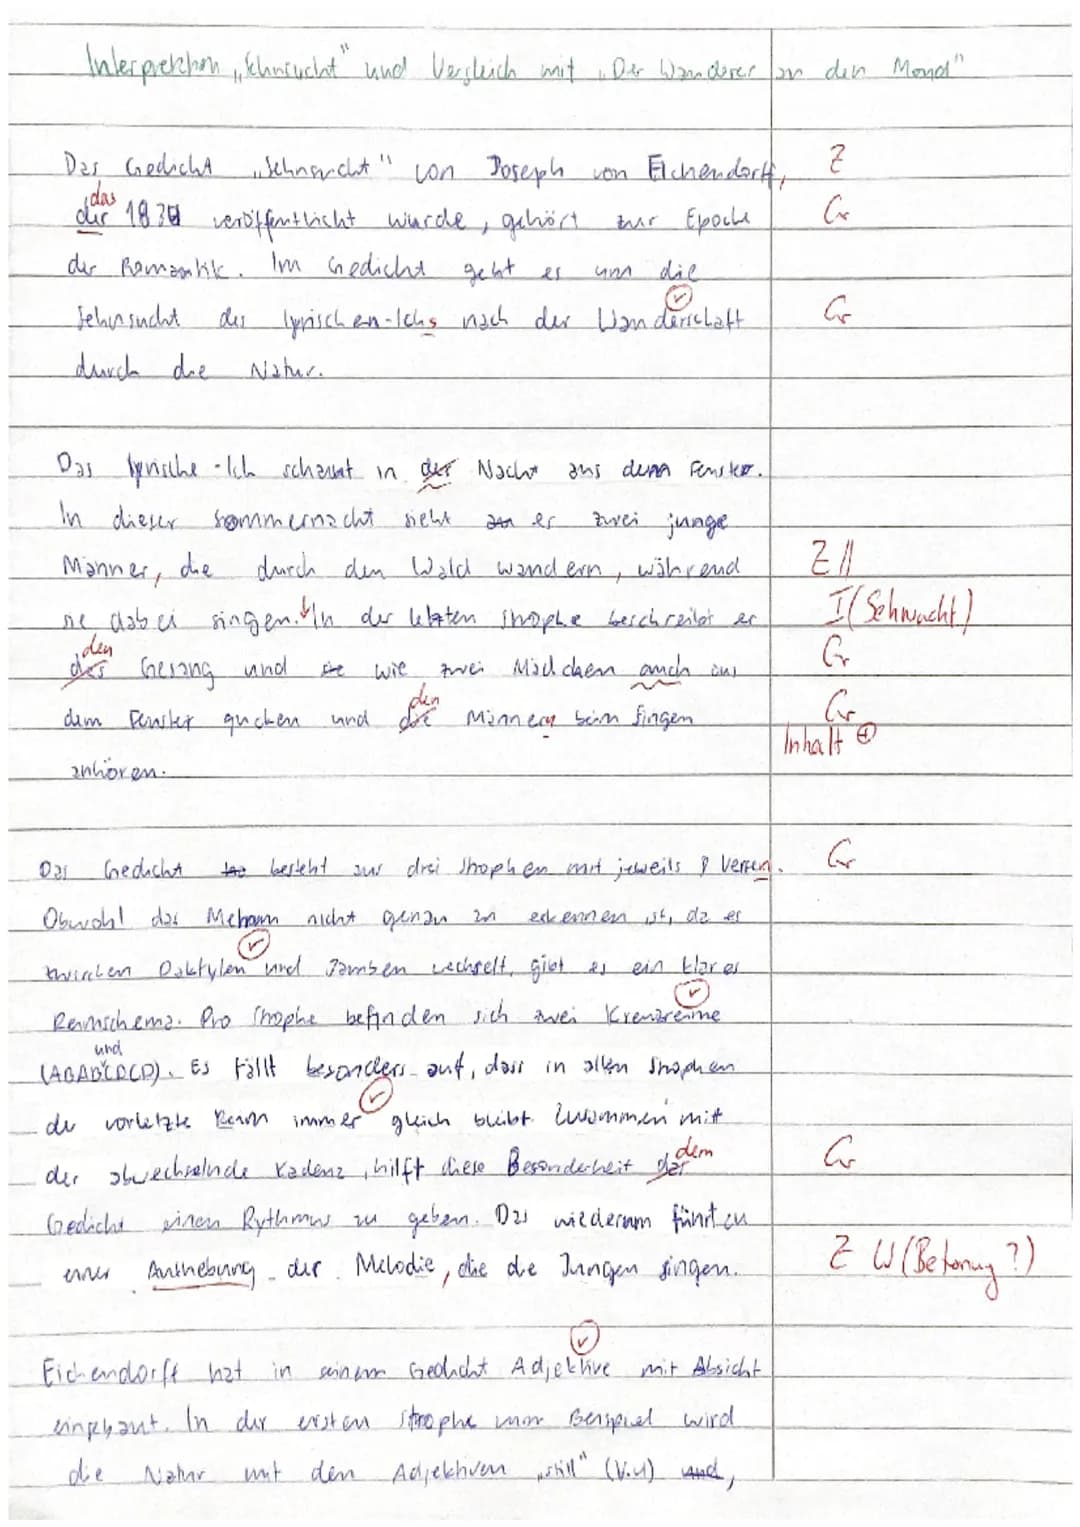 Interpretation „Sehnsucht" und Vergleich mit „Der Wanderer an den Mond"
Das Gedicht „Sehnsucht" von Joseph von Eichendorff, Z
das
der 1830 veröffentlicht wurde, gehört zur Epoche Gr
der Romantik. Im Gedicht geht es um die
Sehnsucht des lyrischen-Ichs nach der Wanderschaft Gr
durch die Natur.
Das lyrische-Ich schaut in der Nacht aus dem Fenster.
In dieser Sommernacht sieht er zwei junge
Männer, die durch den Wald wandern, während Z//
sie dabei singen. In der letzten Strophe beschreibt er I (Sehnsucht)
den
des Gesang und wie zwei Mädchen auch aus Gr
den
dem Fenster gucken und die Männern beim singen Gr
Inhalt +
anhören.
Das Gedicht besteht aus drei Strophen mit jeweils 8 Versen. Gr
Obwohl das Metrum nicht genau zu erkennen ist, da es
zwischen Daktylen und Jamben wechselt, gibt es ein klares
Reimschema. Pro Strophe befinden sich zwei Kreuzreime
und
(ABABCDCD). Es fällt besonders auf, dass in allen Strophen
der vorletzte Reim immer gleich bleibt. Zusammen mit
dem
der abwechselnde Kadenz, hilft diese Besonderheit der Gr
Gedicht einen Rythmus zu geben. Das wiederum führt zu
einer Anhebung der Melodie, die die Jungen singen. Z W (Betonung?)
Eichendorff hat in seinem Gedicht Adjektive mit Absicht
eingebaut. In der ersten Strophe zum Beispiel wird
die Natur mit den Adjektiven „still" (V.4) und,